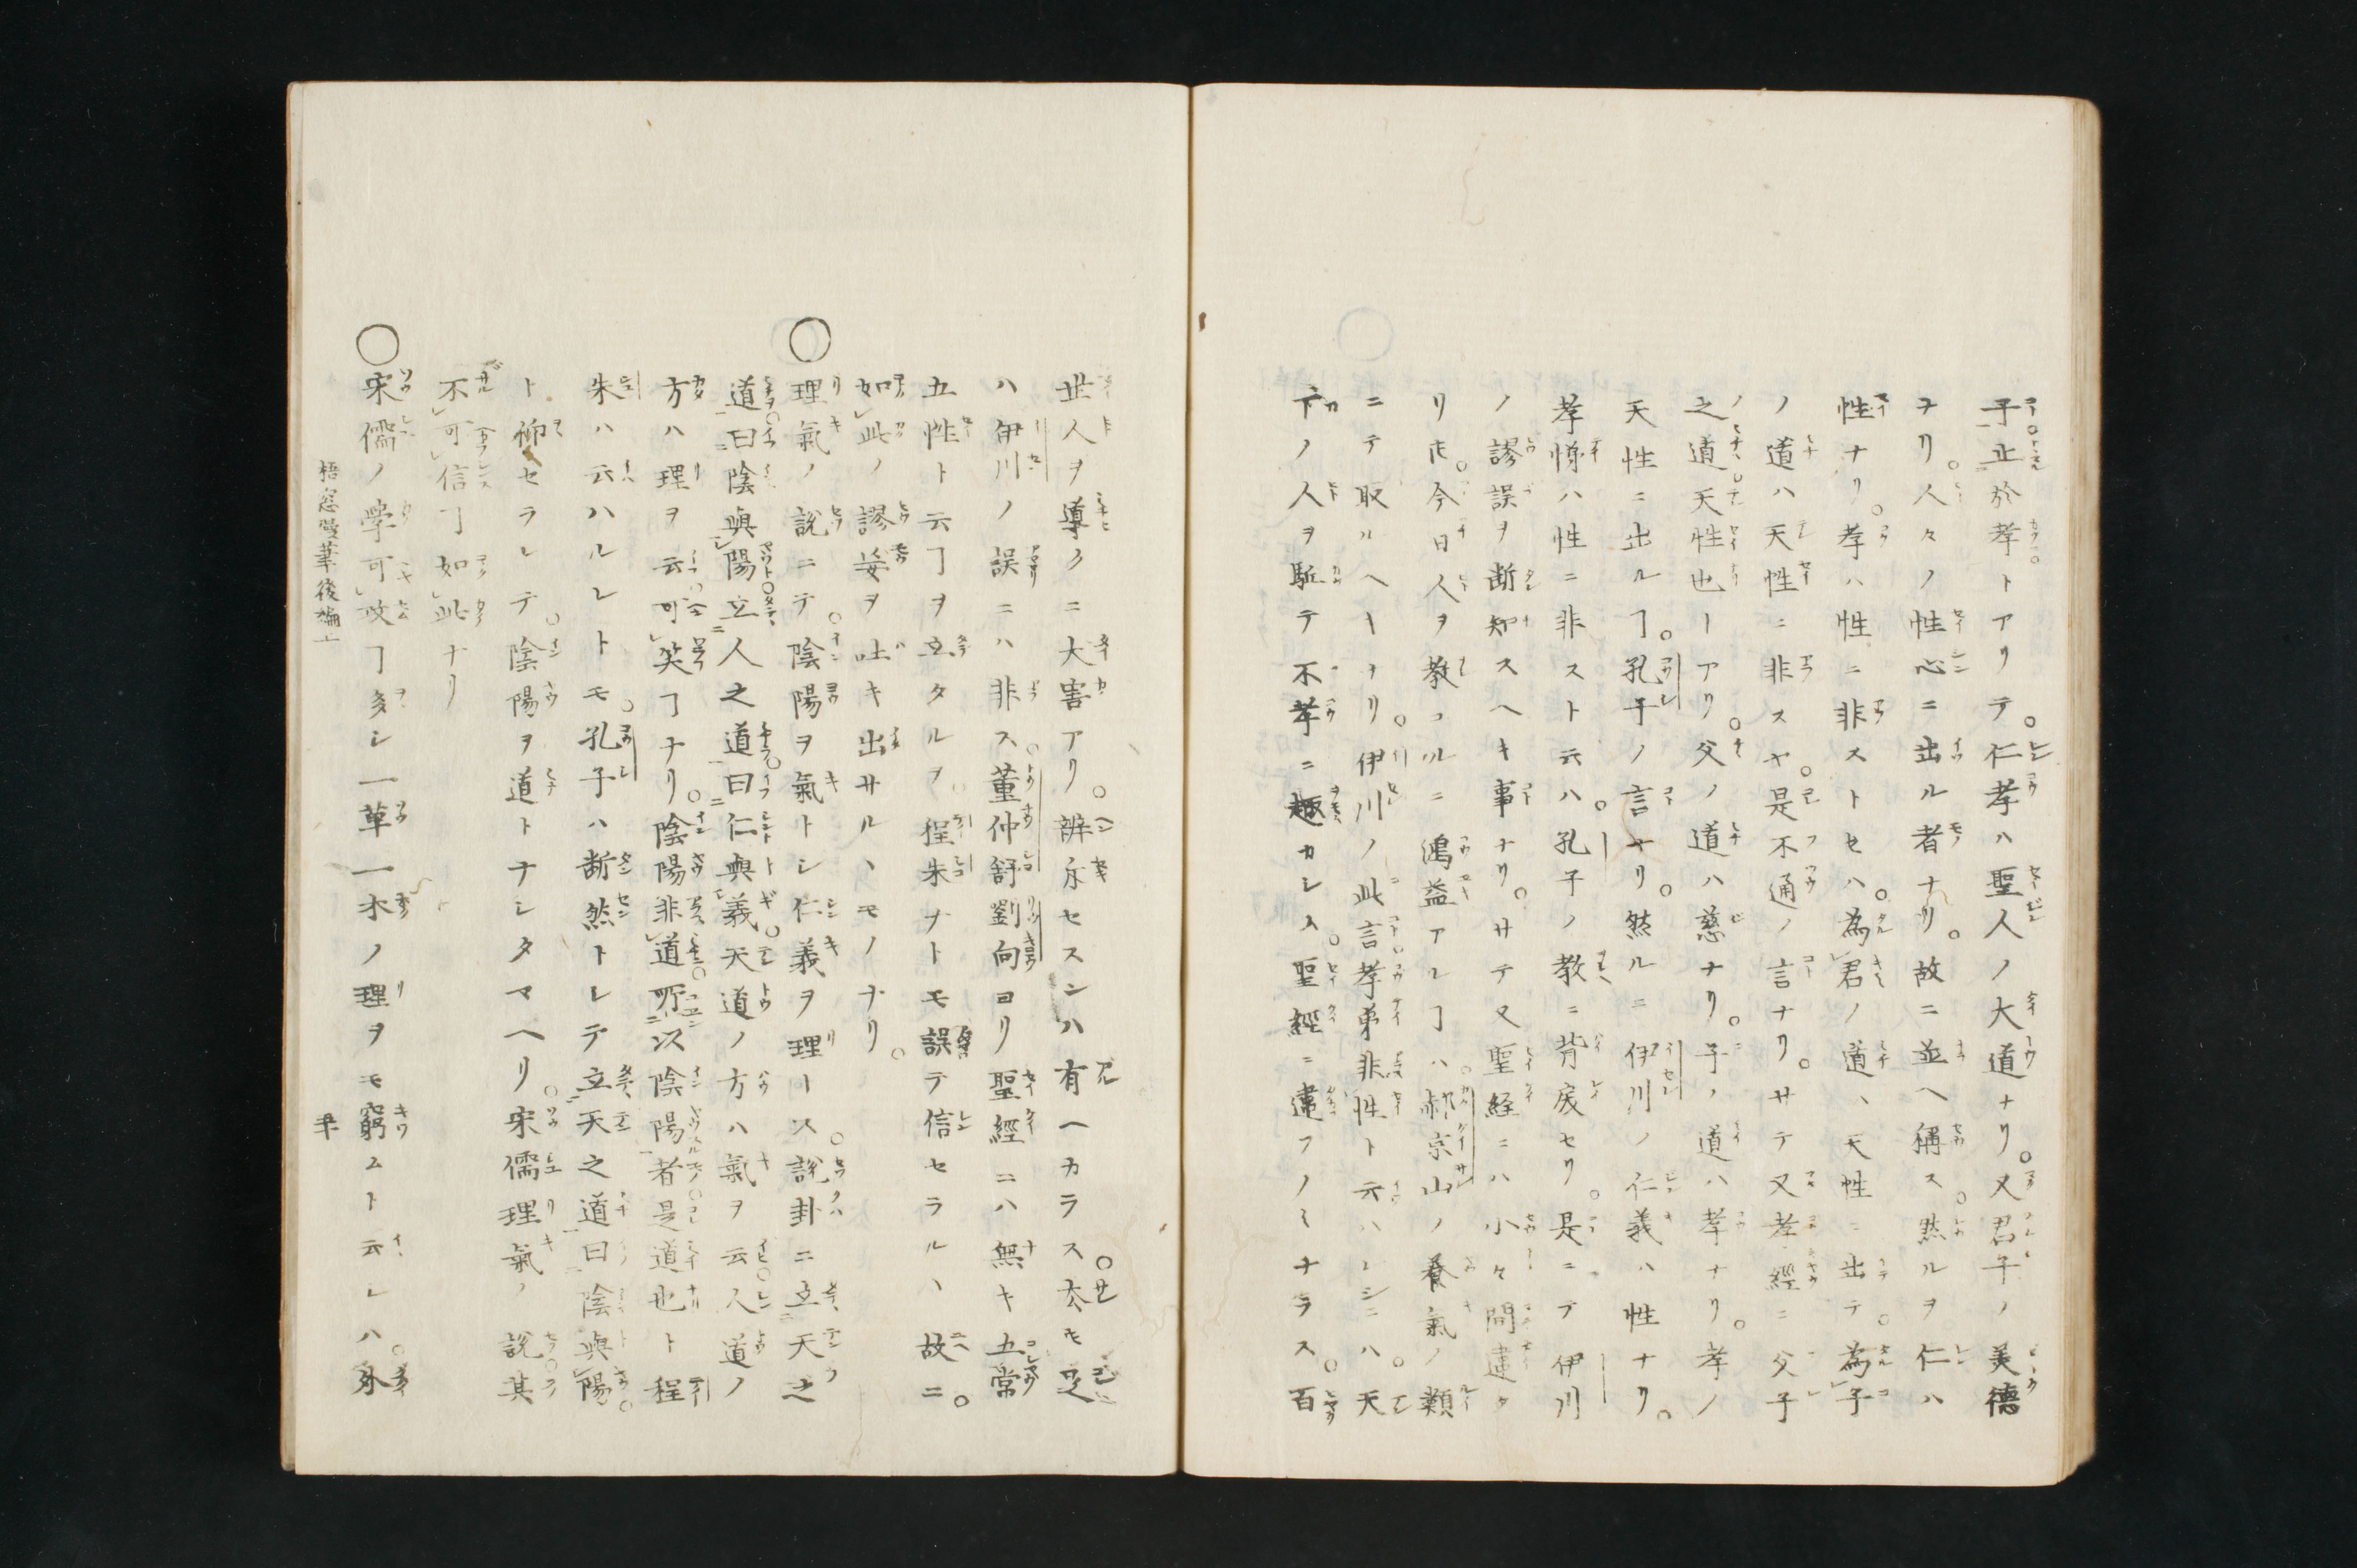 子止於孝トアリテ。仁孝ハ聖人ノ大道ナリ。又君子ノ美德
ナリ。人々ノ性心ニ出ル者ナリ。故ニ並ヘ稱ス。然ルヲ仁ハ
性ナリ。孝ハ性ニ非ストセハ。為君ノ道、天性ニ出テ。為子
ノ道ハ天性ニ非スヤ。是不通ノ言ナリ。サテ又孝經ニ父子
之道天性也ーアリ。父ノ道ハ慈ナリ。子ノ道ハ孝ナリ。孝ノ
天性ニ出ルヿ。孔子ノ言ナリ。然ルニ伊川ノ仁義ハ性ナリ。
孝悌ハ性ニ非スト云ハ。孔子ノ教ニ背戻セリ。是ニテ伊川
ノ謬誤ヲ断知スヘキ事ナリ。サテ又聖経ニハ小々間違タ
リ𪜈。今日人ヲ教フルニ鴻益アルヿハ。郝京山ノ養氣ノ類
ニテ取ルヘーナリ。伊川ノ此言孝弟非性ト云ハレシニハ。天
下ノ人ヲ駈テ不孝ニ趣カシム。聖經ニ違フノミナラス。百
世人ヲ導クニ大害アリ。辨斥セスンハ有ヘカラス。太モ是
ハ伊川ノ誤ニハ非ス。董仲舒劉向ヨリ聖經ニハ無キ五常
五性ト云ヿヲ立タルヲ程朱ナトモ誤テ信セラルヽ故ニ。
如此ノ謬妄ヲ吐キ出サルヽモノナリ。
○理氣ノ說ニテ。陰陽ヲ氣トシ仁義ヲ理ース。說卦ニ立天之
道曰陰與陽立人之道曰仁與義。天道ノ方ハ氣ヲ云人道ノ
方ハ理ヲ云。可笑ヿナリ。陰陽非道所以陰陽者是道也ト程
朱ハ云ハルレトモ。孔子ハ断然トレテ立天之道曰陰與陽。
ト仰セラレテ。陰陽ヲ道トナシタマヘリ。宋儒理氣ノ說其
不可信ヿ如此ナリ
○宋儒ノ學可咲ヿ多シ一草一木ノ理ヲモ窮ムト云レハ。多
梧窓漫筆後編上